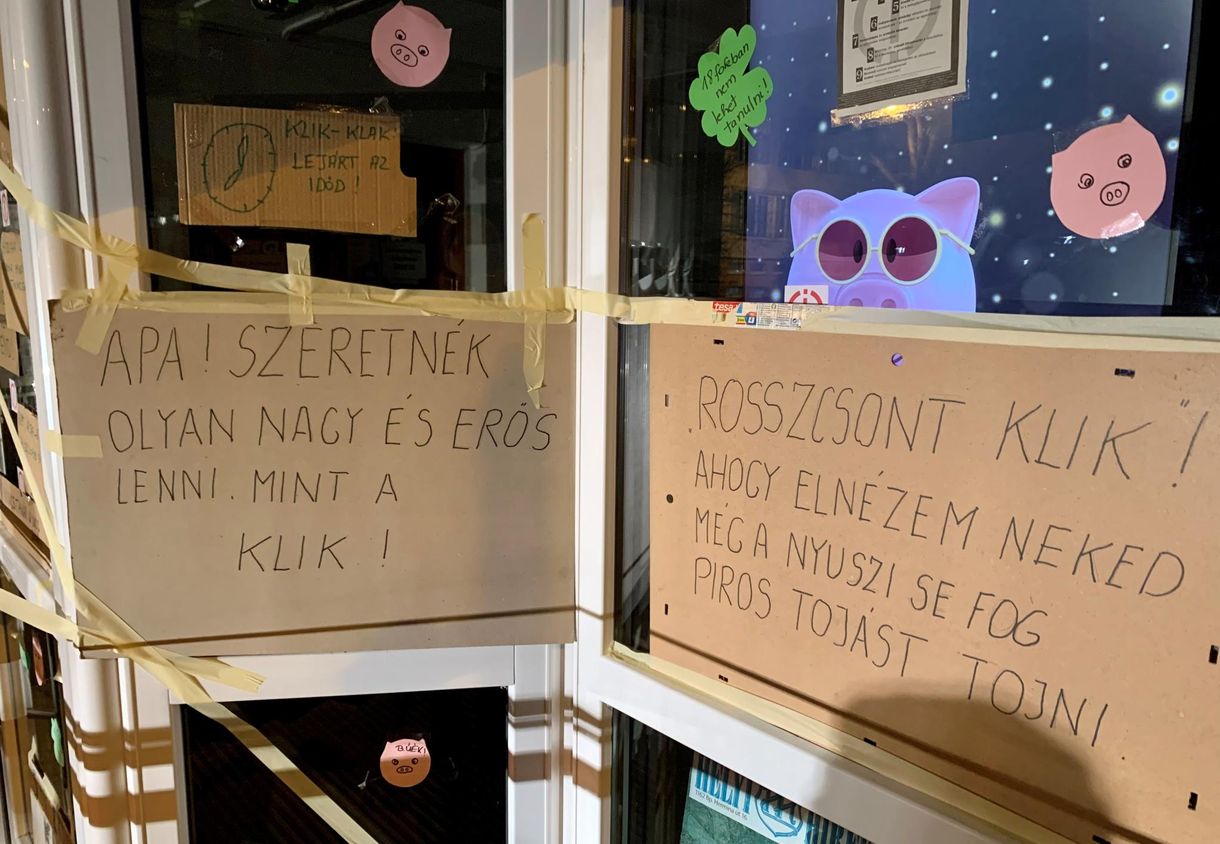 KLIK-KLAK
LEJÁRT AZ
IDŐD!
18 fokban
nem
lehet
tanulni!
5
6
7
8
9
APA! SZERETNÉK
OLYAN NAGY ÉS ERŐS
LENNI. MINT A
KLIK!
tesa
„ROSSZCSONT KLIK"!
AHOGY ELNÉZEM NEKED
MÉG A NYUSZI SE FOG
PIROS TOJÁST TOJNI
BÚÉK!
1162 Bp. Hermina út 16